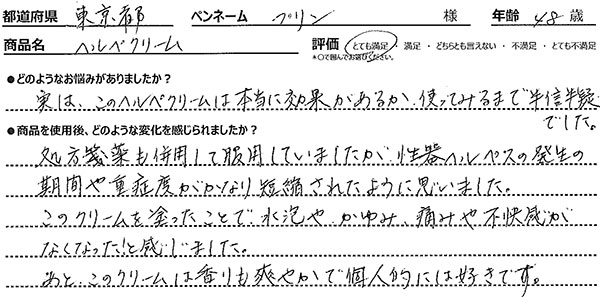 都道府県 東京都 ペンネーム プリン 様 年齢 48 歳
商品名 ヘルペクリーム 評価 とても満足 ・ 満足 ・ どちらとも言えない ・ 不満足 ・ とても不満足
*○で囲んでお選びください。
●どのようなお悩みがありましたか？
実は、このヘルペクリームは本当に効果があるか、使ってみるまで半信半疑
でした。
●商品を使用後、どのような変化を感じられましたか？
処方箋薬も併用して服用していましたが、性器ヘルペスの発生の
期間や重症度がかなり短縮されたように思いました。
このクリームを塗ったことで、水泡や、かゆみ、痛みや不快感が
なくなった！と感じました。
あと、このクリームは香りも爽やかで個人的には好きです。